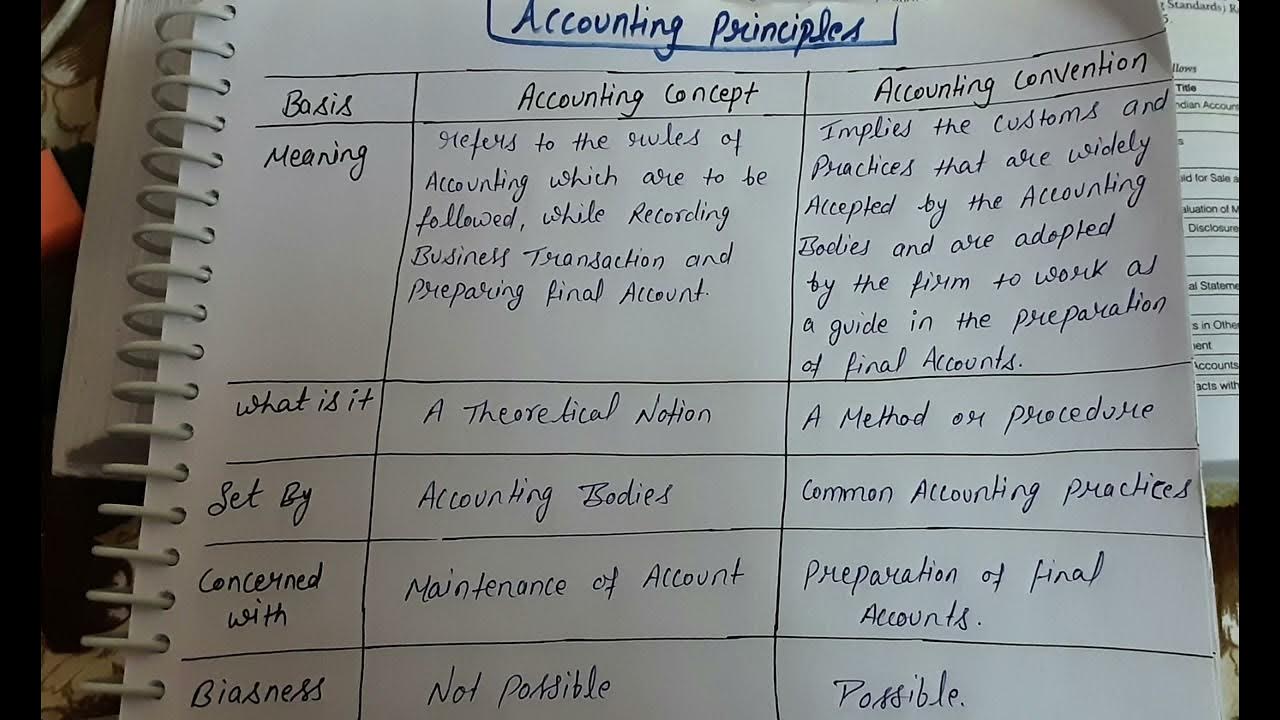 Accounting Principles
Basis
Accounting Concept
Accounting Convention
Meaning
refers to the rules of
Accounting which are to be
followed, while Recording
Business Transaction and
preparing final Account.
Implies the customs and
Practices that are widely
Accepted by the Accounting
Bodies and are adopted
by the firm to work as
a guide in the preparation
of final Accounts.
What is it
A Theoretical Notion
A Method or procedure
Set By
Accounting Bodies
Common Accounting Practices
Concerned
with
Maintenance of Account
Preparation of final
Accounts.
Biasness
Not Possible
Possible.
Standards)
5.
llows
Title
ndian Accoun
s
eld for Sale a
aluation of M
Disclosure
al Stateme
s in Othe
ent
Accounts
acts with